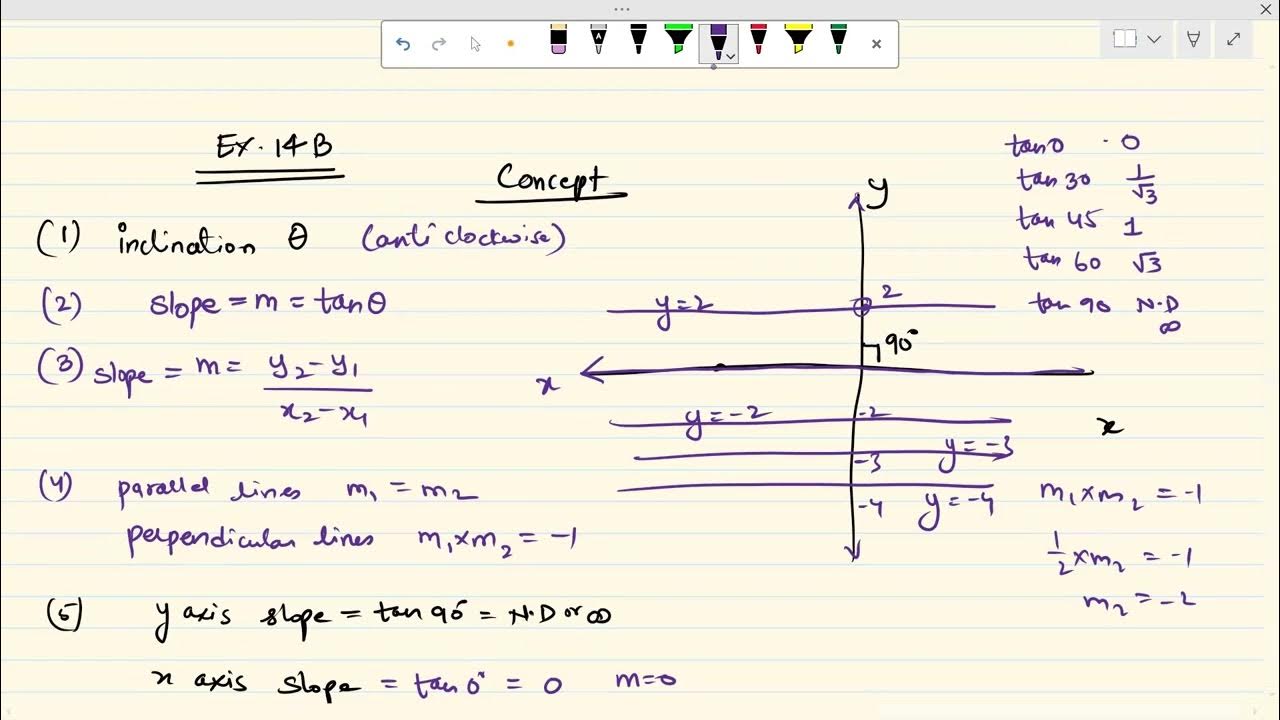 Ex. 14B
Concept
(1) inclination θ (anticlockwise)
(2) slope = m = tanθ
(3) slope = m = y₂-y₁
x₂-x₁
(4) parallel lines m₁ = m₂
perpendicular lines m₁×m₂ = -1
(5) y axis slope = tan 90° = N.D or ∞
x axis slope = tan 0° = 0 m=0
y
y=2
2
90°
x
x
y=-2
-2
y=-3
-3
-4
y=-4
tan0 · 0
tan 30 1/√3
tan 45 1
tan 60 √3
tan 90 N.D
∞
m₁×m₂ = -1
1/2 ×m₂ = -1
m₂ = -2
A